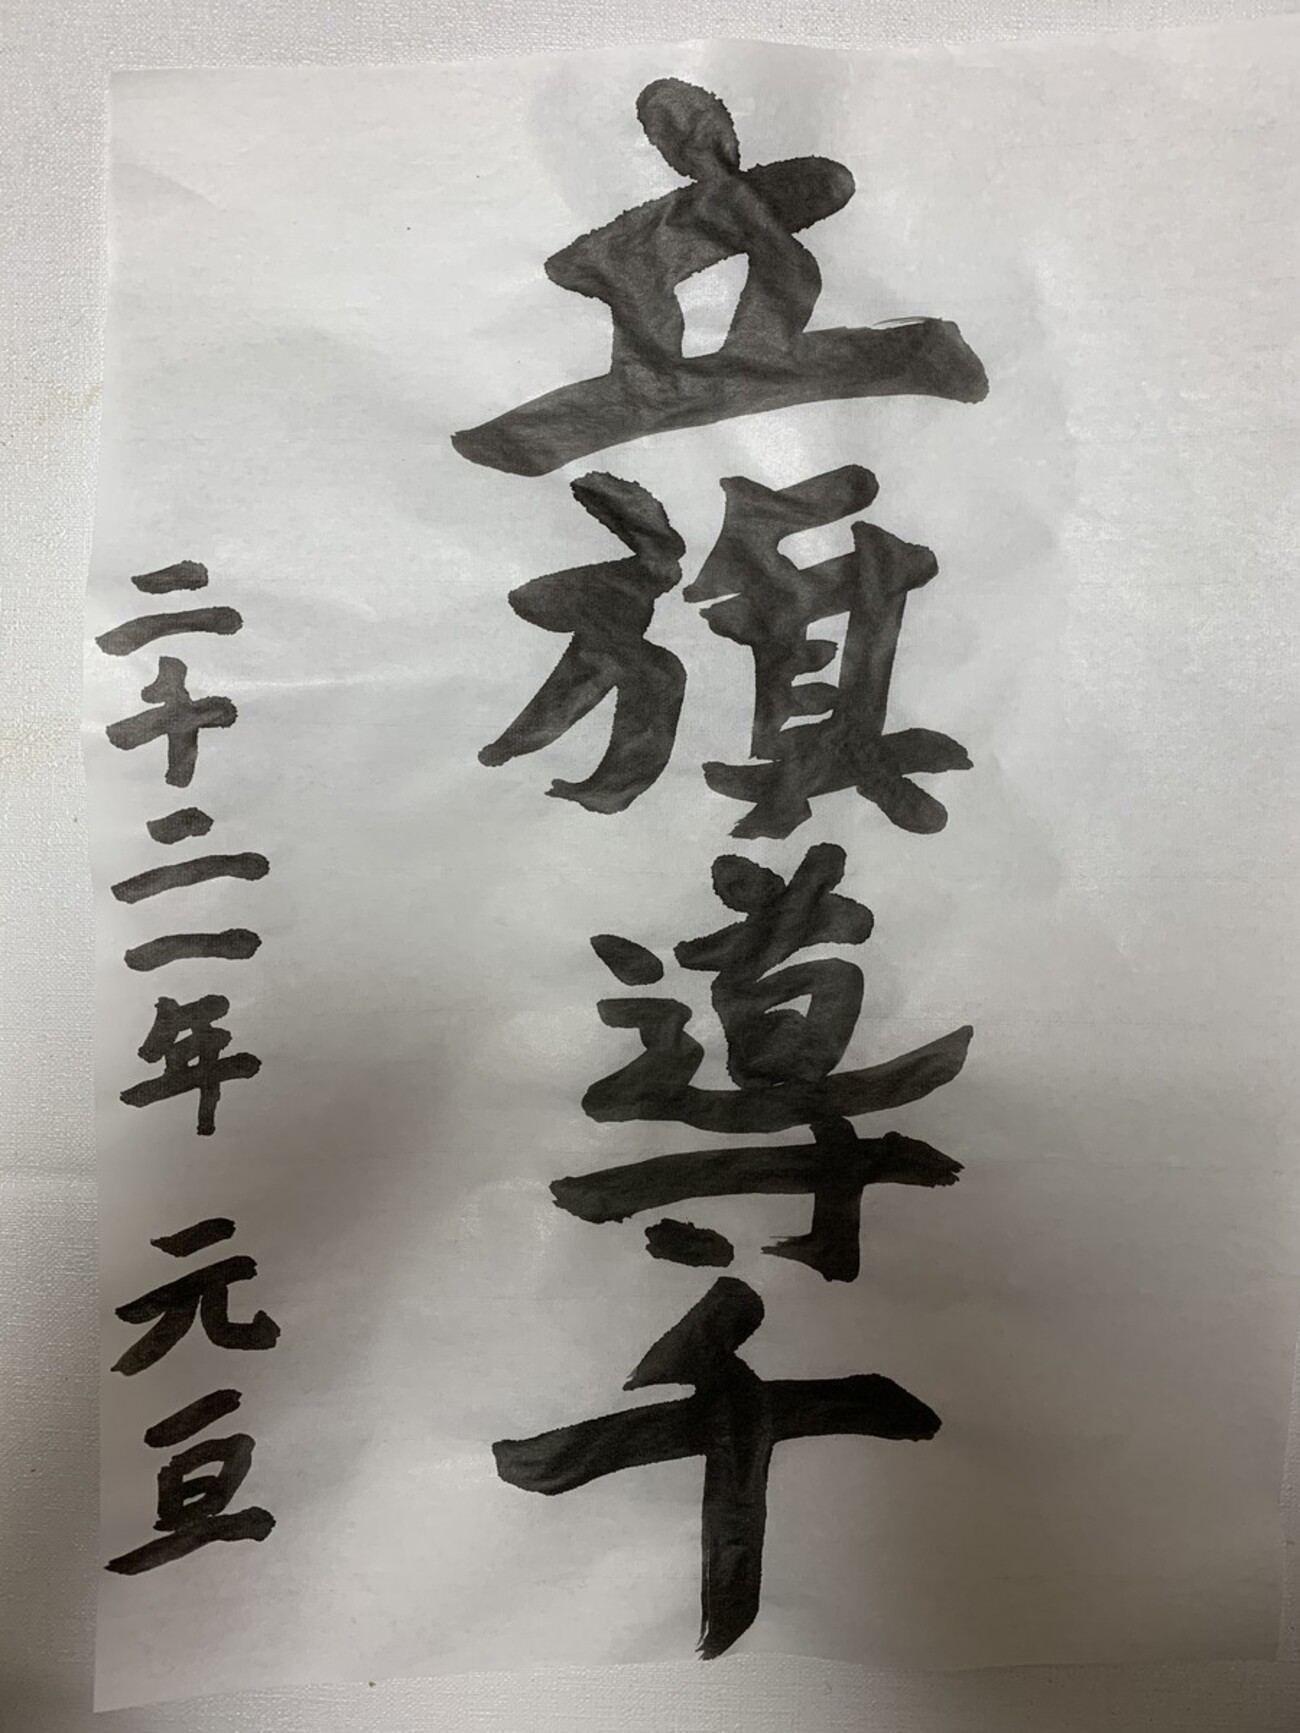 立旗導千
二十二一年 元亘